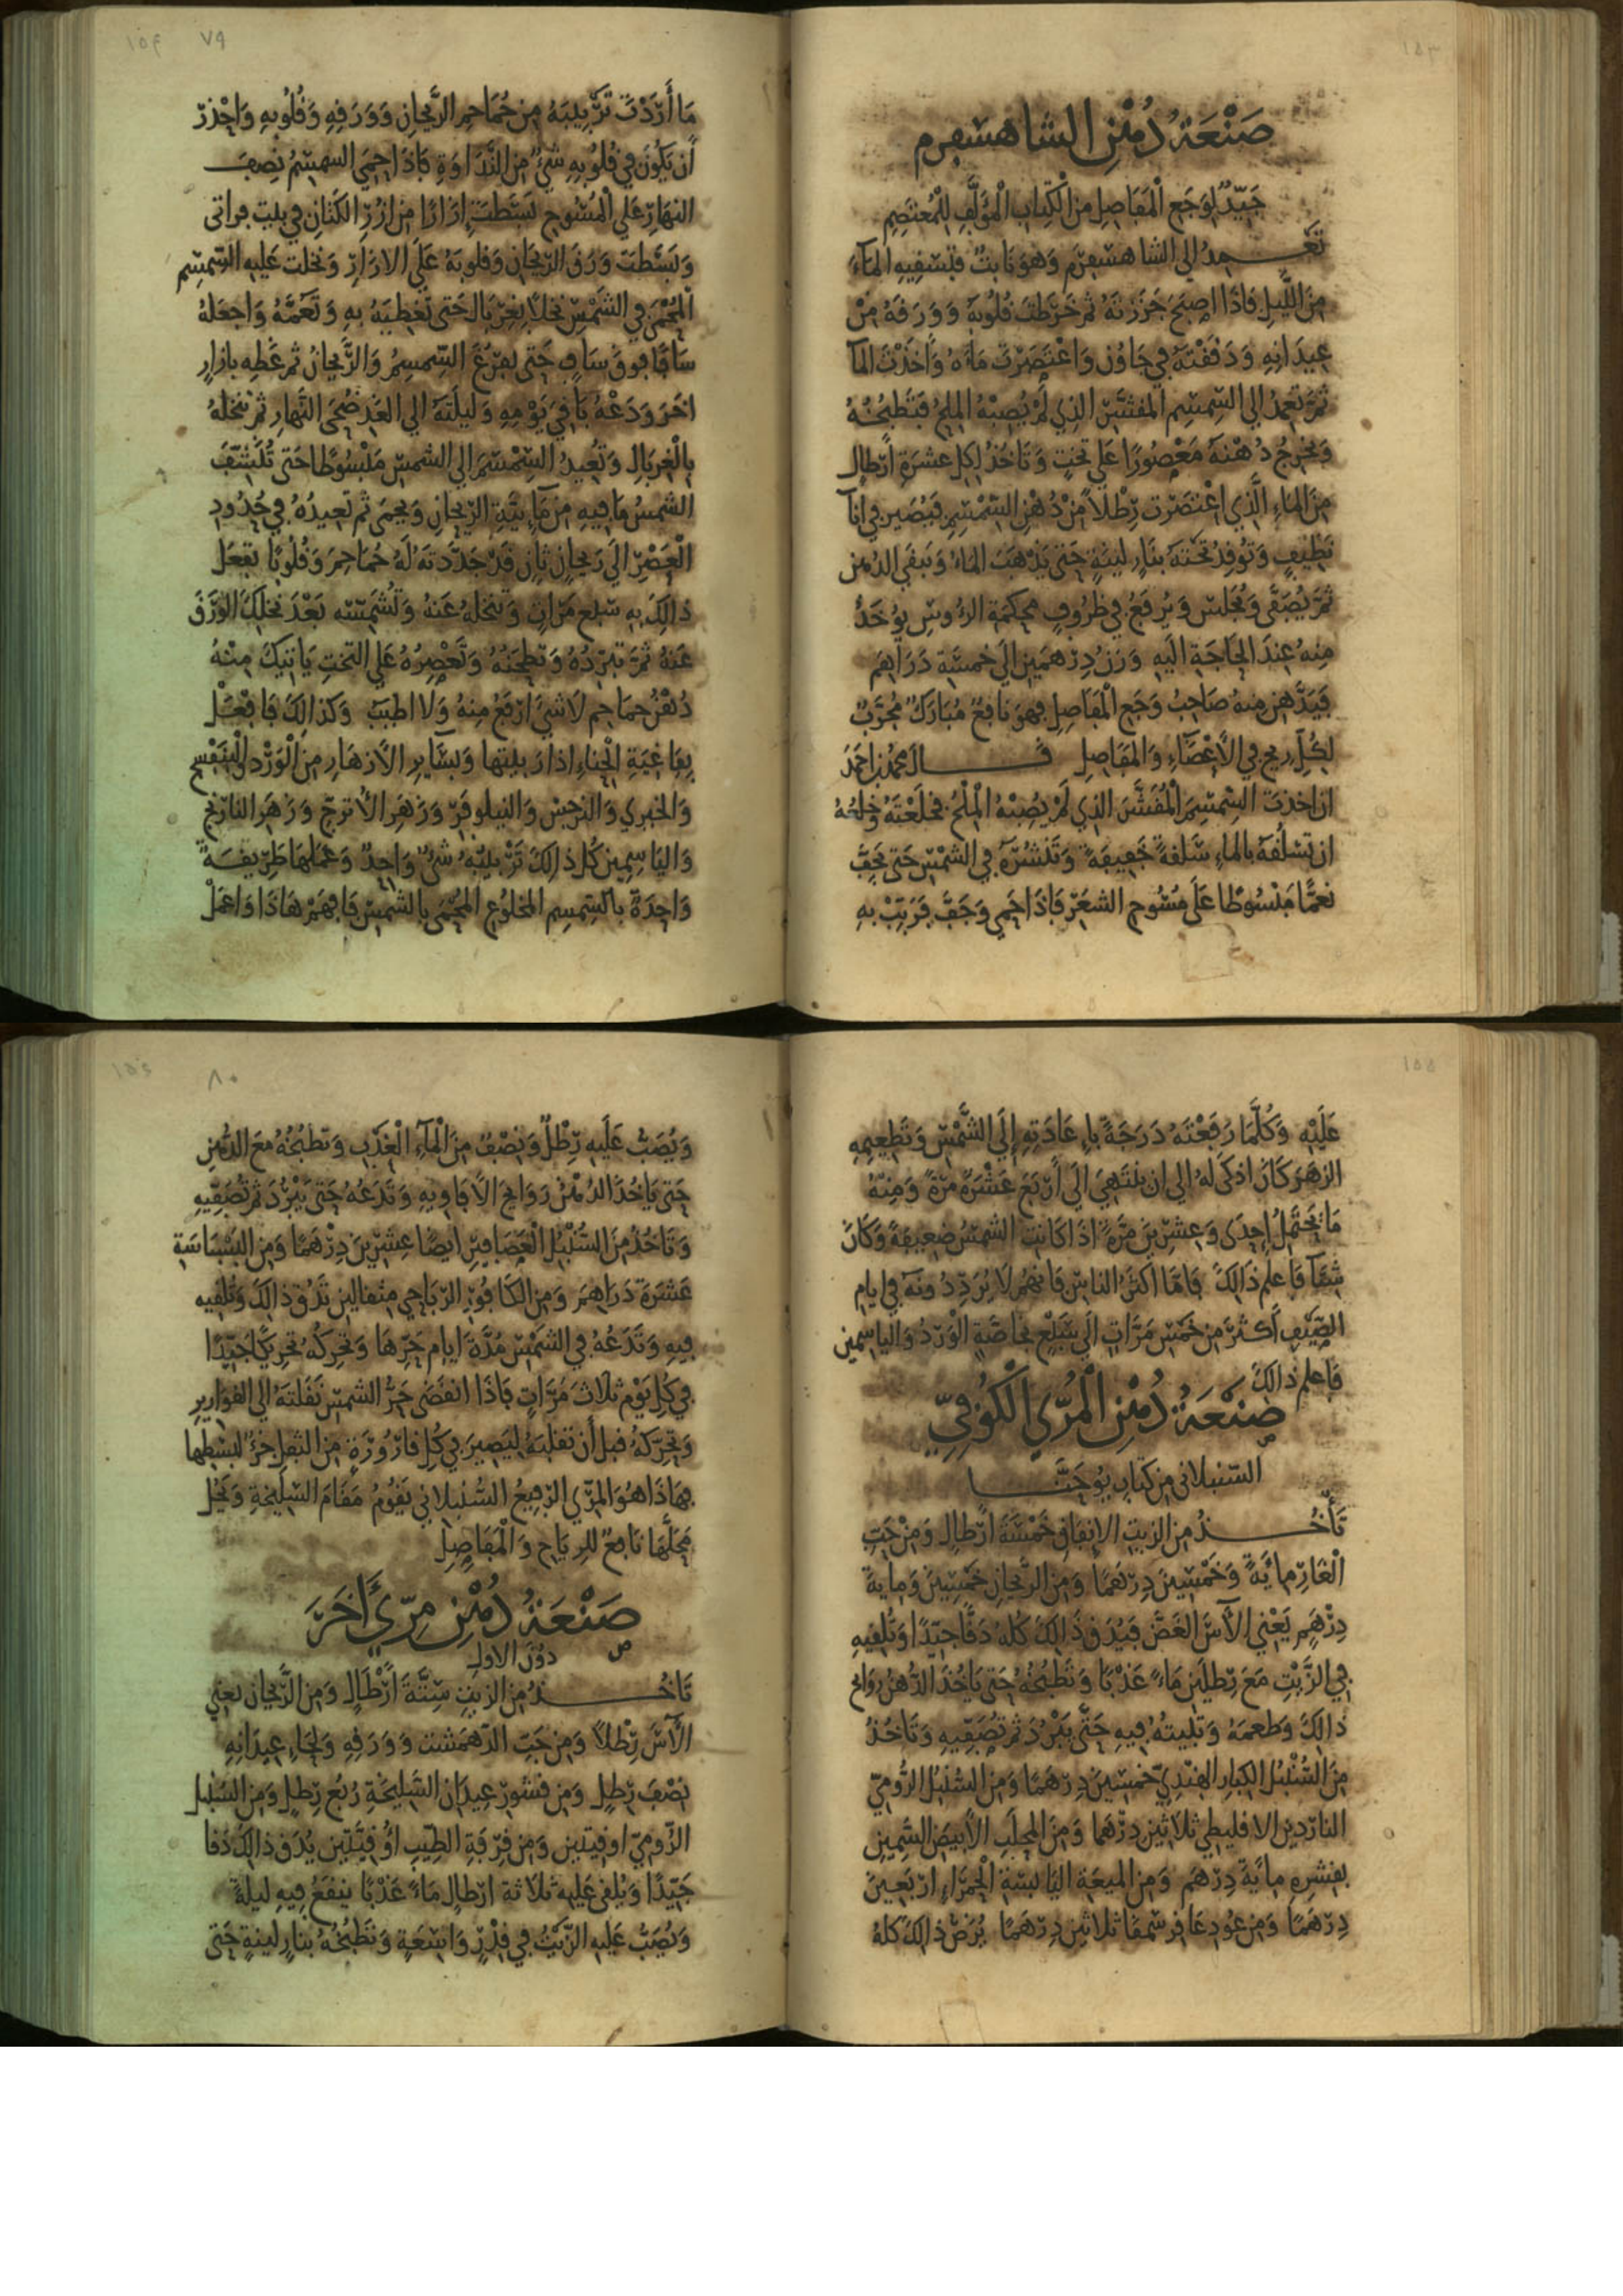 ١٥٣
صَنْعَةُ دُهْنِ الشاهسفرم
جَيّدٌ لوَجَعِ الْمَفَاصِلِ مِنَ الْكِتَابِ الْمُؤَلَّفِ لِلْمُعْتَصِمِ
تَعْمِدُ الى الشاهسفرَم وَهوَ نَابتٌ فتسْقِيهِ المآءَ
مِنَ اللَّيلِ فَاذَا اصبَحَ جَزَزتَهُ ثم خَرَطتَ قُلُوبَهُ وَوَرَقَهُ مِنْ
عِيدَانِهِ وَدَقَقْتَهُ في جَاوُن وَاعْتَصَرْتَ مَاءَهُ وَأخَذْتَ المآ
ثُمَّ تَعمِدُ الى السِمسِم المقشَّر الذِي لَمْ يُصِبْهُ المِلحُ فَتَطْحَنُهُ
وَتخْرجُ دُهْنَهُ مَعْصُورًا عَلى تختٍ وَتَاخُذُ لِكل عشرَةِ ارْطالٍ
مِنَ الماءِ الَّذِي اعْتَصَرْت رِطلاً مِنْ دُهْنِ السمْسِم فَيُصَير في انآ
نَظِيفٍ وَتُوقِدُ تَحْتَهُ بنَارٍ لينَةٍ حَتى يَذْهَبَ الماءُ وَيَبقَى الدُهن
ثمَّ يُصَفَّى وَيُرفَعُ في ظُرُوفٍ محكمَةِ الرُءوسِ يُؤخَذُ
مِنهُ عِندَ الحَاجَةِ اليهِ وَزنُ دِرْهَمَين الى خَمسَةِ دَرَاهِمَ
فَيَدَّهن منهُ صَاحِبُ وَجَعِ المفَاصِل فهوَ نَافِعٌ مُبَارَكٌ مُجَرَّبٌ
لِكُلِّ ريح في الأَعْضَاءِ وَالمفَاصِل قَالَ محمد بن احمَدَ
ان اخذتَ السِمْسِمَ الْمُقَشَّرَ الذِي لَمْ يُصِبْهُ الْمِلْحُ فخلَعْتَهُ وَخلعُهُ
ان تسْلُقَهُ بالماءِ سَلقةً خَفِيفَةً وَتَنْشُرَهُ في الشمْسِ حَتى يَجِفَّ
نعمَّا مَبْسُوطًا عَلَى مُسُوحِ الشعَرِ فَاذَا حَمِيَ وَجَفَّ فَرَبِّبْ بِهِ
١٥٤ ٧٩
مَا أَرَدْتَ تَرْبِيبَهُ مِن حُمَاحِمِ الرَّيحَانِ وَوَرَقِهِ وَقُلُوبِهِ وَاحْذرْ
أن يَكُونَ في قُلُوبِهِ شَيْءٌ مِنَ النَّدَاوَةِ فَاذَا حَمِيَ السمسِمُ نِصفَ
النهَارِ عَلَى الْمُسُوحِ بَسَطْتَ إزَارًا مِن أزُرِ الكَتَانِ في بيتٍ
وَبَسَطتَ وَرَقَ الرّيحَانِ وَقلوبَهُ عَلَى الازَارِ وَنخَلتَ عَلَيهِ السِّمسِم
المُحْمَى في الشمْسِ نخلاً بغِرْبَالٍ حَتى تُغطِيَهُ بِهِ وَتَعُمَّهُ وَاجعَلهُ
سَافًا فوقَ سَافٍ حَتى يفرُغَ السِّمسِمُ وَالرَّيحَانُ ثم غَطِهِ بازارٍ
اخَرَ وَدَعْهُ بَاقِيَ يَوْمِهِ وَلَيلَتَهُ الى الغَدِ ضُحَى النَّهارِ ثم تنخلهُ
بِالْغِربَالِ وَتُعِيدُ السِّمْسِمَ الى الشمسِ مَبْسُوطًا حَتى تُنَشِّفَ
الشمسُ مَا فِيهِ مِن مَآئِيَّةِ الرَيحَانِ وَيَحمَى ثم تعِيدُهُ في حُدُودِ
الْعَصْرِ الَى رَيحَانٍ ثَانٍ قَدْ جَدَّدتَ لَهُ حُمَاحِمَ وَقُلُوبًا يفعَل
ذالِكَ بهِ سبع مَرّاتٍ وَتنخلهُ عَنهُ وَتُشَمِسُه بَعْدَ نخلِكَ الوَرَقَ
عَنهُ ثمَّ تبرّدُهُ وَتطحَنهُ وَتَعْصِرُهُ عَلى التختِ يَاتِيكَ مِنْهُ
دُهْنُ حمَاحِم لَا شَيْ ارْفَعُ مِنهُ وَلَا اطيَبَ وَكذالِكَ فَافْعَلْ
بفَاغِيَةِ الْحِناءِ اذا رَبيتَها وَبسَايِرِ الأزهَارِ مِنَ الْوَرْدِ وَالْبَنفسَجِ
وَالخيري وَالنرجِس وَالنيلوفَر وَزَهَرِ الأُترجّ وَزَهَرِ النارَنج
وَاليَاسمِين كُل ذالِكَ تَرْبِيبُهُ شَيْءٌ وَاحِدٌ وَعَمَلهَا طَرِيقَةٌ
وَاحِدَةٌ بالسِمسِم المخلوعِ المُحْمَى بالشمسِ فَافهَمْ هَاذَا وَاعمَلْ
١٥٥
عَلَيْهِ وَكُلَّمَا رَفَعْتَهُ دَرَجَةً بإِعَادَتِهِ إِلَى الشَّمْسِ وَتَطعِيمِهِ
الزهَرَ كَانَ اذكَى لَهُ الى ان يَنتَهِيَ الَى أَرْبَعَ عَشْرَةَ مَرَّةً وَمِنْهُ
مَا يَحتَمِلُ إحدَى وَعِشرِينَ مَرَّةً اذَا كَانَتِ الشمْسُ ضعِيفَةً وَكَانَ
شِتَآءً فَاعلم ذَالِكَ فَامَّا أكثَرُ الناسِ فَانهُم لَا يُرَدِّدُونَهُ في ايام
الصَّيفِ أَكثَرَ مِن خَمْسِ مَرَّاتٍ الَى سَبْعٍ بخاصَّةِ الوَرْدِ وَاليَاسمِين
فَاعلم ذالِكَ
صَنْعَةُ دُهْنِ الْمُرِّي الْكُوفِيّ
السّنبلانى مِن كتابِ يُوحَنَّا
تَأْخُذُ مِنَ الزيتِ الإِنفَاقِ خَمْسَةَ ارْطالٍ وَمِنْ حَبِّ
الْغَارِ مِائَةً وَخَمْسِينَ دِرْهَمًا وَمِنَ الرَّيحَانِ خَمْسِينَ وَمايةَ
دِرْهَمٍ يَعْنِي الآسَ الغَضَّ فَيُدَق ذَالِكَ كُلهُ دَقًّا جَيّدًا وَتُلقِيهِ
في الزَّيْتِ مَعَ رِطلَينِ مَاءً عَذْبًا وَتَطْبُخهُ حَتى يَاخُذَ الدُّهنُ رَوَائحَ
ذالِكَ وَطعمَهُ وَتبيتهُ فِيهِ حَتَّى يَبْرُدَ ثم تُصَفِّيهِ وَتَاخُذُ
مِنَ السُّنْبُلِ الكِبارِ الهِنْدِيّ خمسِينَ دِرْهَمًا وَمِنَ السُّنْبُلِ الرُّومِيّ
الناردِين الاقليطي ثلاثِينَ دِرْهَمًا وَمِنَ المحْلَبِ الأَبيَضِ السَّمِين
بقِشرِهِ مائَةَ دِرْهَمٍ وَمِنَ الميعَةِ اليَابِسَةِ الْحَمْرَاءِ ارْبَعِينَ
دِرْهَمًا وَمِن عُودِ ثلاثِينَ دِرْهَمًا يُرَضّ ذالِكَ كلهُ
١٥٦ ٨٠
وَيُصَبُّ عَلَيهِ رِطْلٌ وَنِصْفٌ مِنَ الْمَاءِ الْعَذْبِ وَتَطبُخُهُ مَعَ الدُّهنِ
حَتى يَاخُذَ الدُهْنُ رَوَائحَ الأَفَاوِيهِ وَتَدَعُهُ حَتَى يَبْرُدَ ثم تُصَفّيهِ
وَتَاخُذُ مِنَ السُّنْبُلِ الْعَصَافِير ايضًا عِشْرِينَ دِرْهَمًا وَمِنَ البَسْبَاسَةِ
عَشرَةَ دَرَاهِمَ وَمِنَ الكَافُورِ الرّبَاحِي مِثقالَين تَدُق ذالِكَ وَتُلقِيه
فِيهِ وَتَدَعُهُ في الشمْسِ مُدَّةَ ايامِ حَرِّهَا وَتحركُهُ تحرِيكًا جَيّدًا
في كُل يَوْم ثلاثَ مَرَّاتٍ فَاذَا انقَضَى حَرُّ الشمسِ نَقَلتَهُ الى القوَارِيرِ
وَتحرّكهُ قبل أن تقلبَهُ ليَصِيرَ في كُل قَارُورَةٍ مِنَ الثُفلِ جُزْءٌ لِبَسْطِها
فهَاذَا هُوَ المرّي الرَّفِيعُ السُّنبلاني يَقُومُ مَقَامَ السَّلِيخَةِ وَيَحُل
مَحَلَّهَا نَافِعٌ للرِيَاحِ وَالْمَفَاصِلِ
صَنْعَةُ دُهْنِ مِرِّي أَخَرَ
دُونَ الاول
تَاخُذُ مِنَ الزيتِ سِتَّةَ أَرْطَالٍ وَمِنَ الرَّيحَان يعنِي
الآسَ رِطْلاً وَمِن حَبِّ الدَّهمَشتِ وَوَرَقِهِ وَلِحَاءِ عِيدَانِهِ
نِصْفَ رِطلٍ وَمِن قشورِ عِيدَانِ السَّلِيخَةِ رُبْعَ رِطلٍ وَمِنَ السُنبُل
الرُّومِيّ اوقيتينِ وَمِن قِرْفَةِ الطِّيبِ أُوْقِيَّتَينِ يُدَق ذالِكَ دَقا
جَيّدًا وَيُلقَى عَلَيهِ ثلَاثة ارْطالٍ مَاءً عَذْبًا ينقَعُ فِيهِ لَيلَةً
وَيُصَبُّ عَلَيهِ الزَّيْتُ في قِدْرٍ وَاسِعَةٍ وَتَطْبُخُهُ بنَارٍ لَينةٍ حَتى